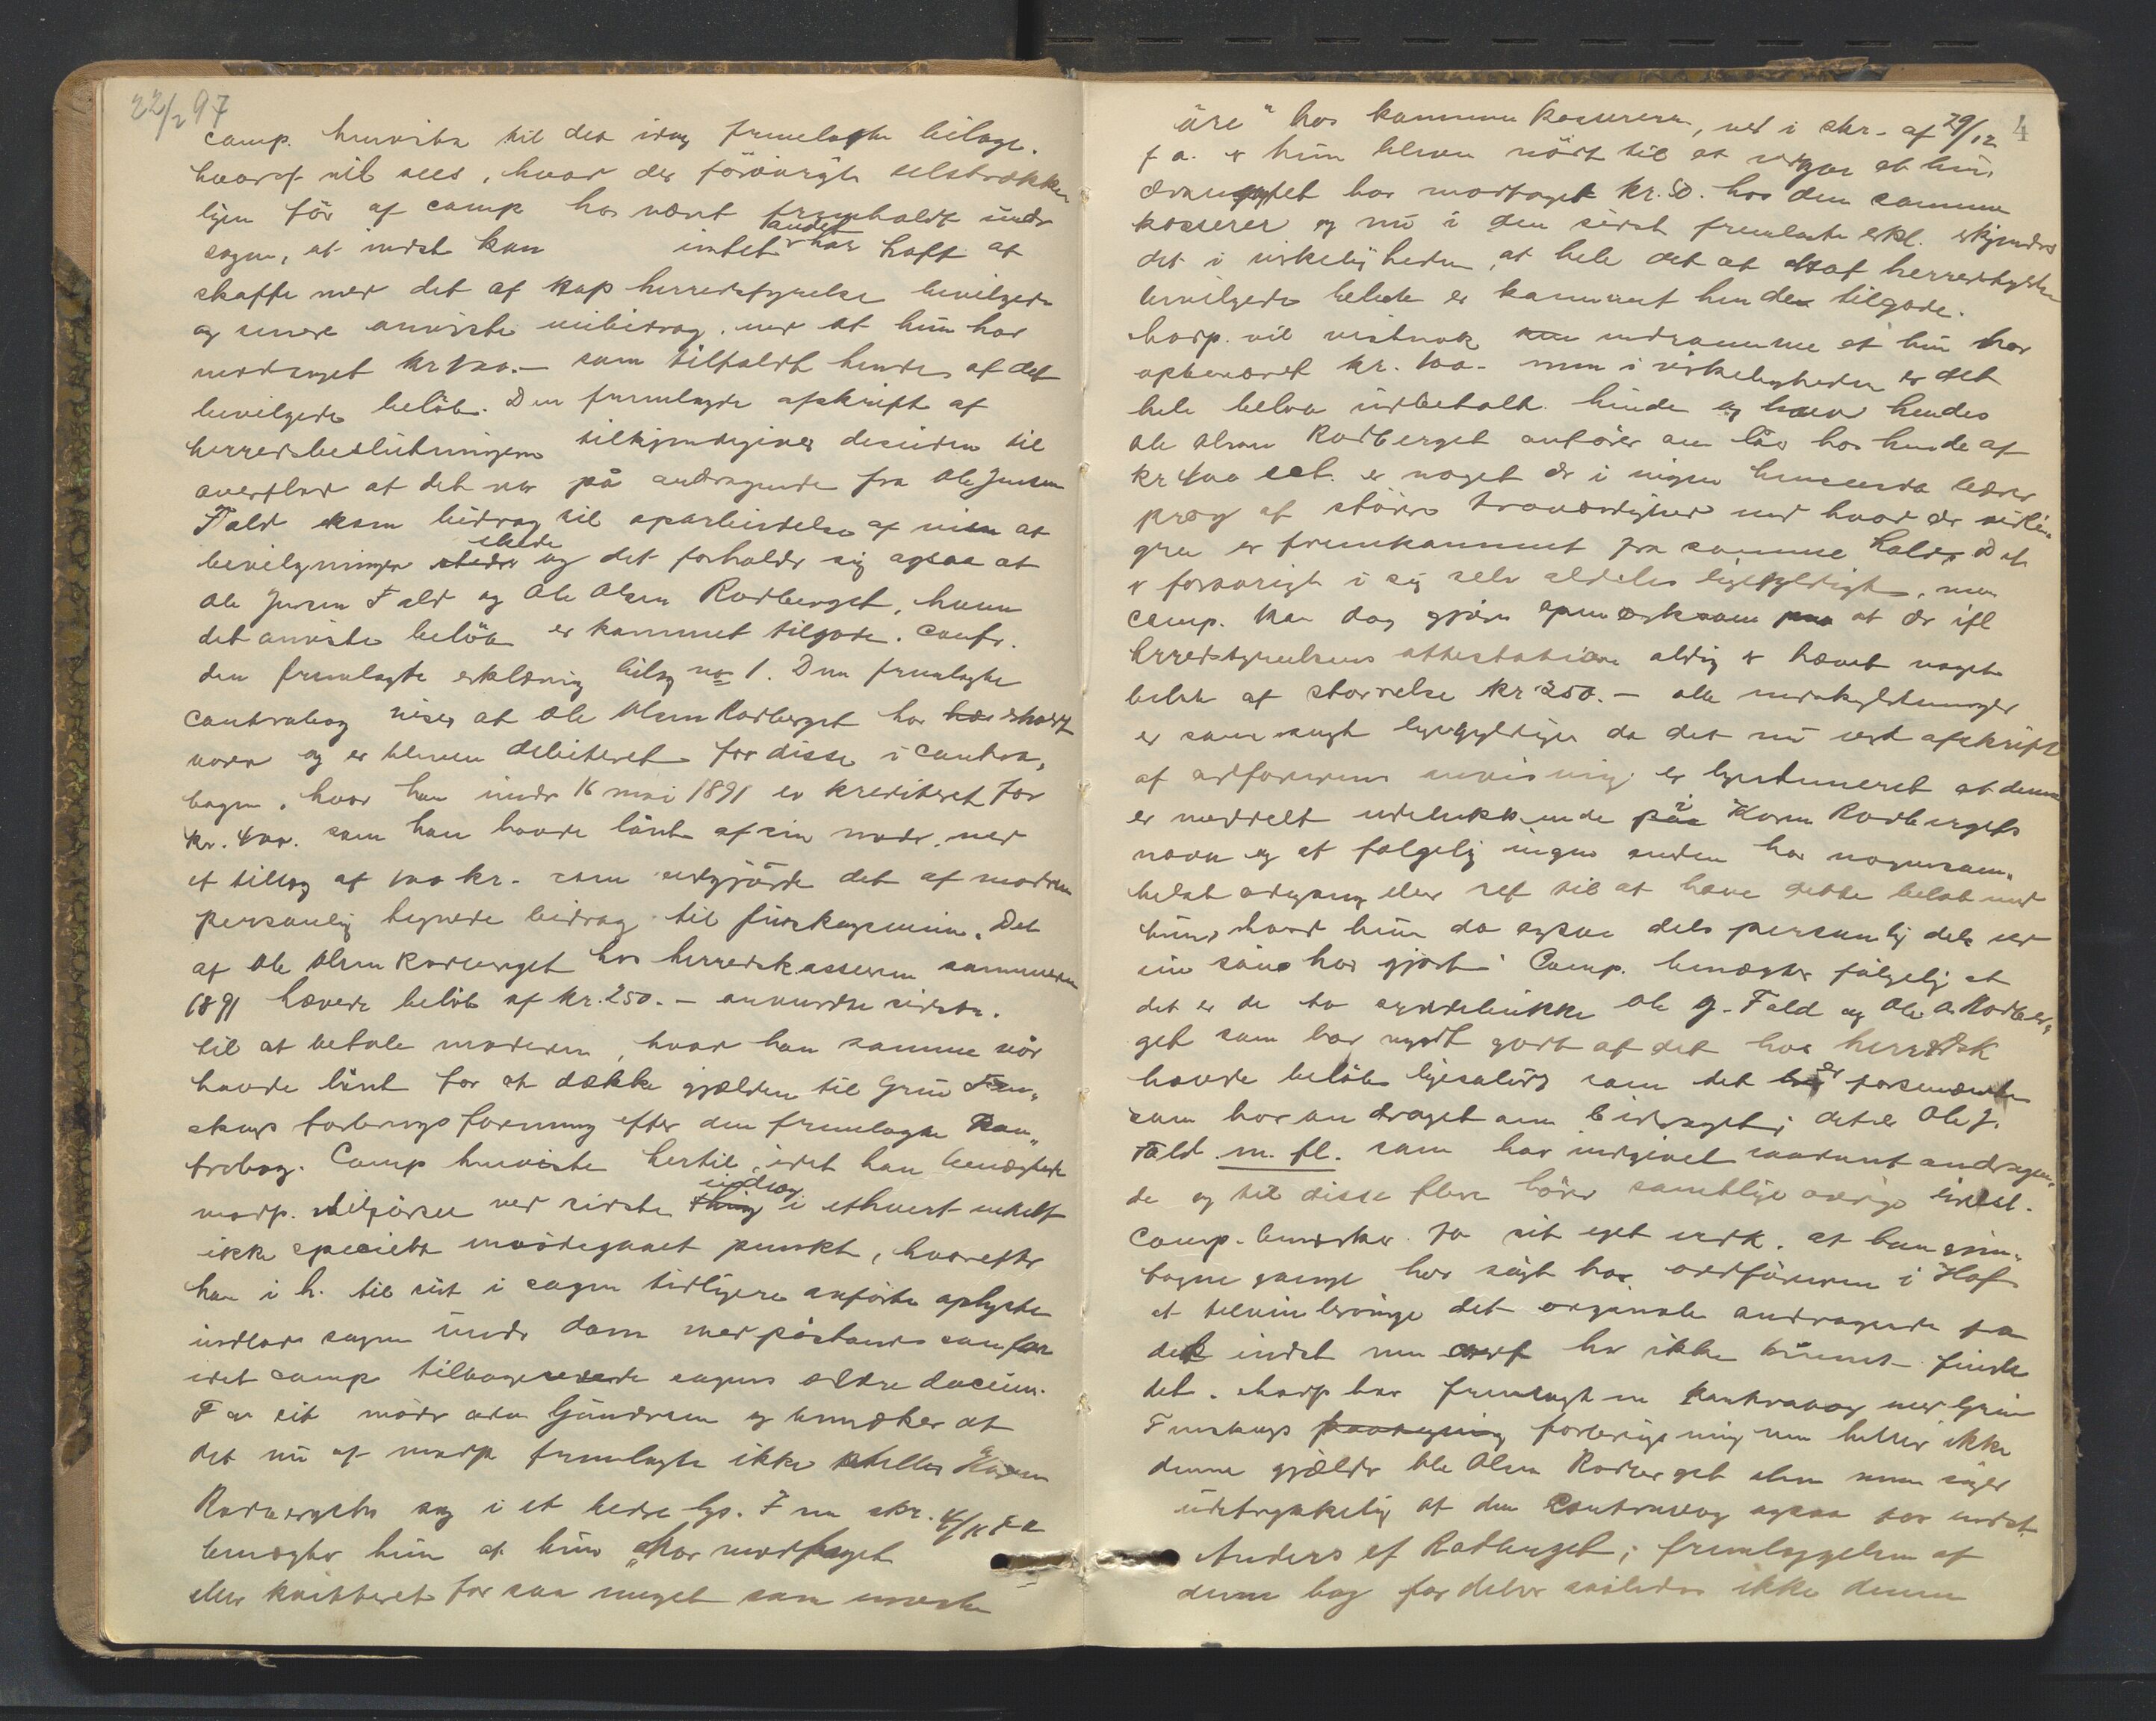 22/2 97
comp. henviste til det idag fremlagte bilage.
hvoraf vil sees, hvad der forøvrigt tilstrække
lign før af comp har vært fremholdt under
sagen, at indst kan intet andet har haft at
skaffe med det af Hofs herredstyrelse bevilgede
og senere anviste veibidrag, end at hun har
modtaget kr 100.— som tilfaldt hendes af det
bevilgede beløb. Den fremlagte afskrift af
herredsbeslutningen tilkjendegiver desuden til
overflod at det var på andragende fra Ole Jensen
Fald som bidrag til oparbeidelse af veien at
bevilgningen skede og det forholder sig ogsaa at
Ole Jensen Fald og Ole Olsen Rodberget, hvem
det anviste beløb er kommet tilgode. Confr.
den fremlagte erklæring bilag no 1. Den fremlagte
contrabog viser at Ole Olsen Rodberget har erholdt
varer og er bleven debiteret for disse i contra,
bogen, hvor han under 16 mai 1891 er krediteret for
kr. 400. som han havde lånt af sin moder, med
et tillæg af 100 kr. som udgjørde det af moderen
personlig tegnede bidrag til
af Ole Olsen Rodberget hos herredskasseren sommeren
1891 hævede beløb af kr. 250.— anvendte sidste.
til at betale moderen, hvad han samme vår
havde lånt for at dække gjælden til Grue Fin„
skogs forbrugsforening efter den fremlagte Kon„
trabog. Comp henviste hertil, idet han benægtede
modp. tilførsel ved sidste indlæg i ethvert enkelt
ikke specielt imødegaaet punkt, hvorefter
han i h. til sit i sagen tidligere anførte oplyste
indlod sagen under dom med påstand som før
idet comp tilbageleverede sagens ældre docum.
For cit møder adv. Gundersen og bemærker at
det nu af modp fremlagte ikke stiller Karen
Rodbergets sag i et bedre lys. I sin skr. 4/11 f a
benægter hun at hun „har modtaget
eller kvitteret for saa meget som eneste
4
øre" hos kommunekassereren, ved i skr. af 29/12
f a. er hun bleven nødt til at vedgaa at hun
har modtaget kr. 50. hos den samme
kasserer og nu i den sidst fremlagte erkl. erkjendes
det i virkeligheden, at hele det af herredstyrelsen
bevilgede beløb er kommet hende tilgode.
Modp. vil vistnok indrømme at hun har
oppebaaret kr. 100.- men i virkeligheden er det
hele beløb udbetalt hende og hvad hendes
Ole Olsen Rodberget anfører om lån hos hende af
kr 400 ect. er noget der i ingen henseende bærer
præg af større troværdighed end hvad der
er fremkommet fra samme hold. Det
er forøvrigt i sig selv aldeles ligegyldigt, men
comp. kan dog gjøre opmærksom paa at der ifl
herredstyrelsens attestation aldrig er hævet noget
beløb af størrelse kr 250.— alle undskyldninger
er som sagt ligegyldige da det nu ved afskrift
af ordførerens anvisning er konstateret at denne
er meddelt udelukkende i Karen Rodbergets
navn og at følgelig ingen anden har nogensom„
helst adgang eller ret til at hæve dette beløb end
hun, hvad hun da ogsaa dels personlig dels ved
sin søn har gjort. Comp. benægter følgelig at
det er de to Ole J. Fald og Ole O. Rodber„
get som har nydt godt af det hos herredsk
hævede beløb ligesaalidt som det er
som har andraget om bidraget; det er Ole J.
Fald m. fl. som har indgivet saadant andragen„
de og til disse flere hører samtlige øvrige indst.
Comp. bemærker for sit eget vedk. at han gjen„
tagne gange har søgt hos ordføreren i Hof
at tilveiebringe det originale andragende fra
det indst men ordf har ikke kunnet finde
det. Modp har fremlagt en kontrabog med Grue
Finskogs forbrugsforening men heller ikke
denne gjælder Ole Olsen Rodberget men siger
udtrykkelig at den contrabog ogsaa for indst
Anders ef Rodberget; fremlæggelsen af
denne bog fordelver saaledes ikke denne